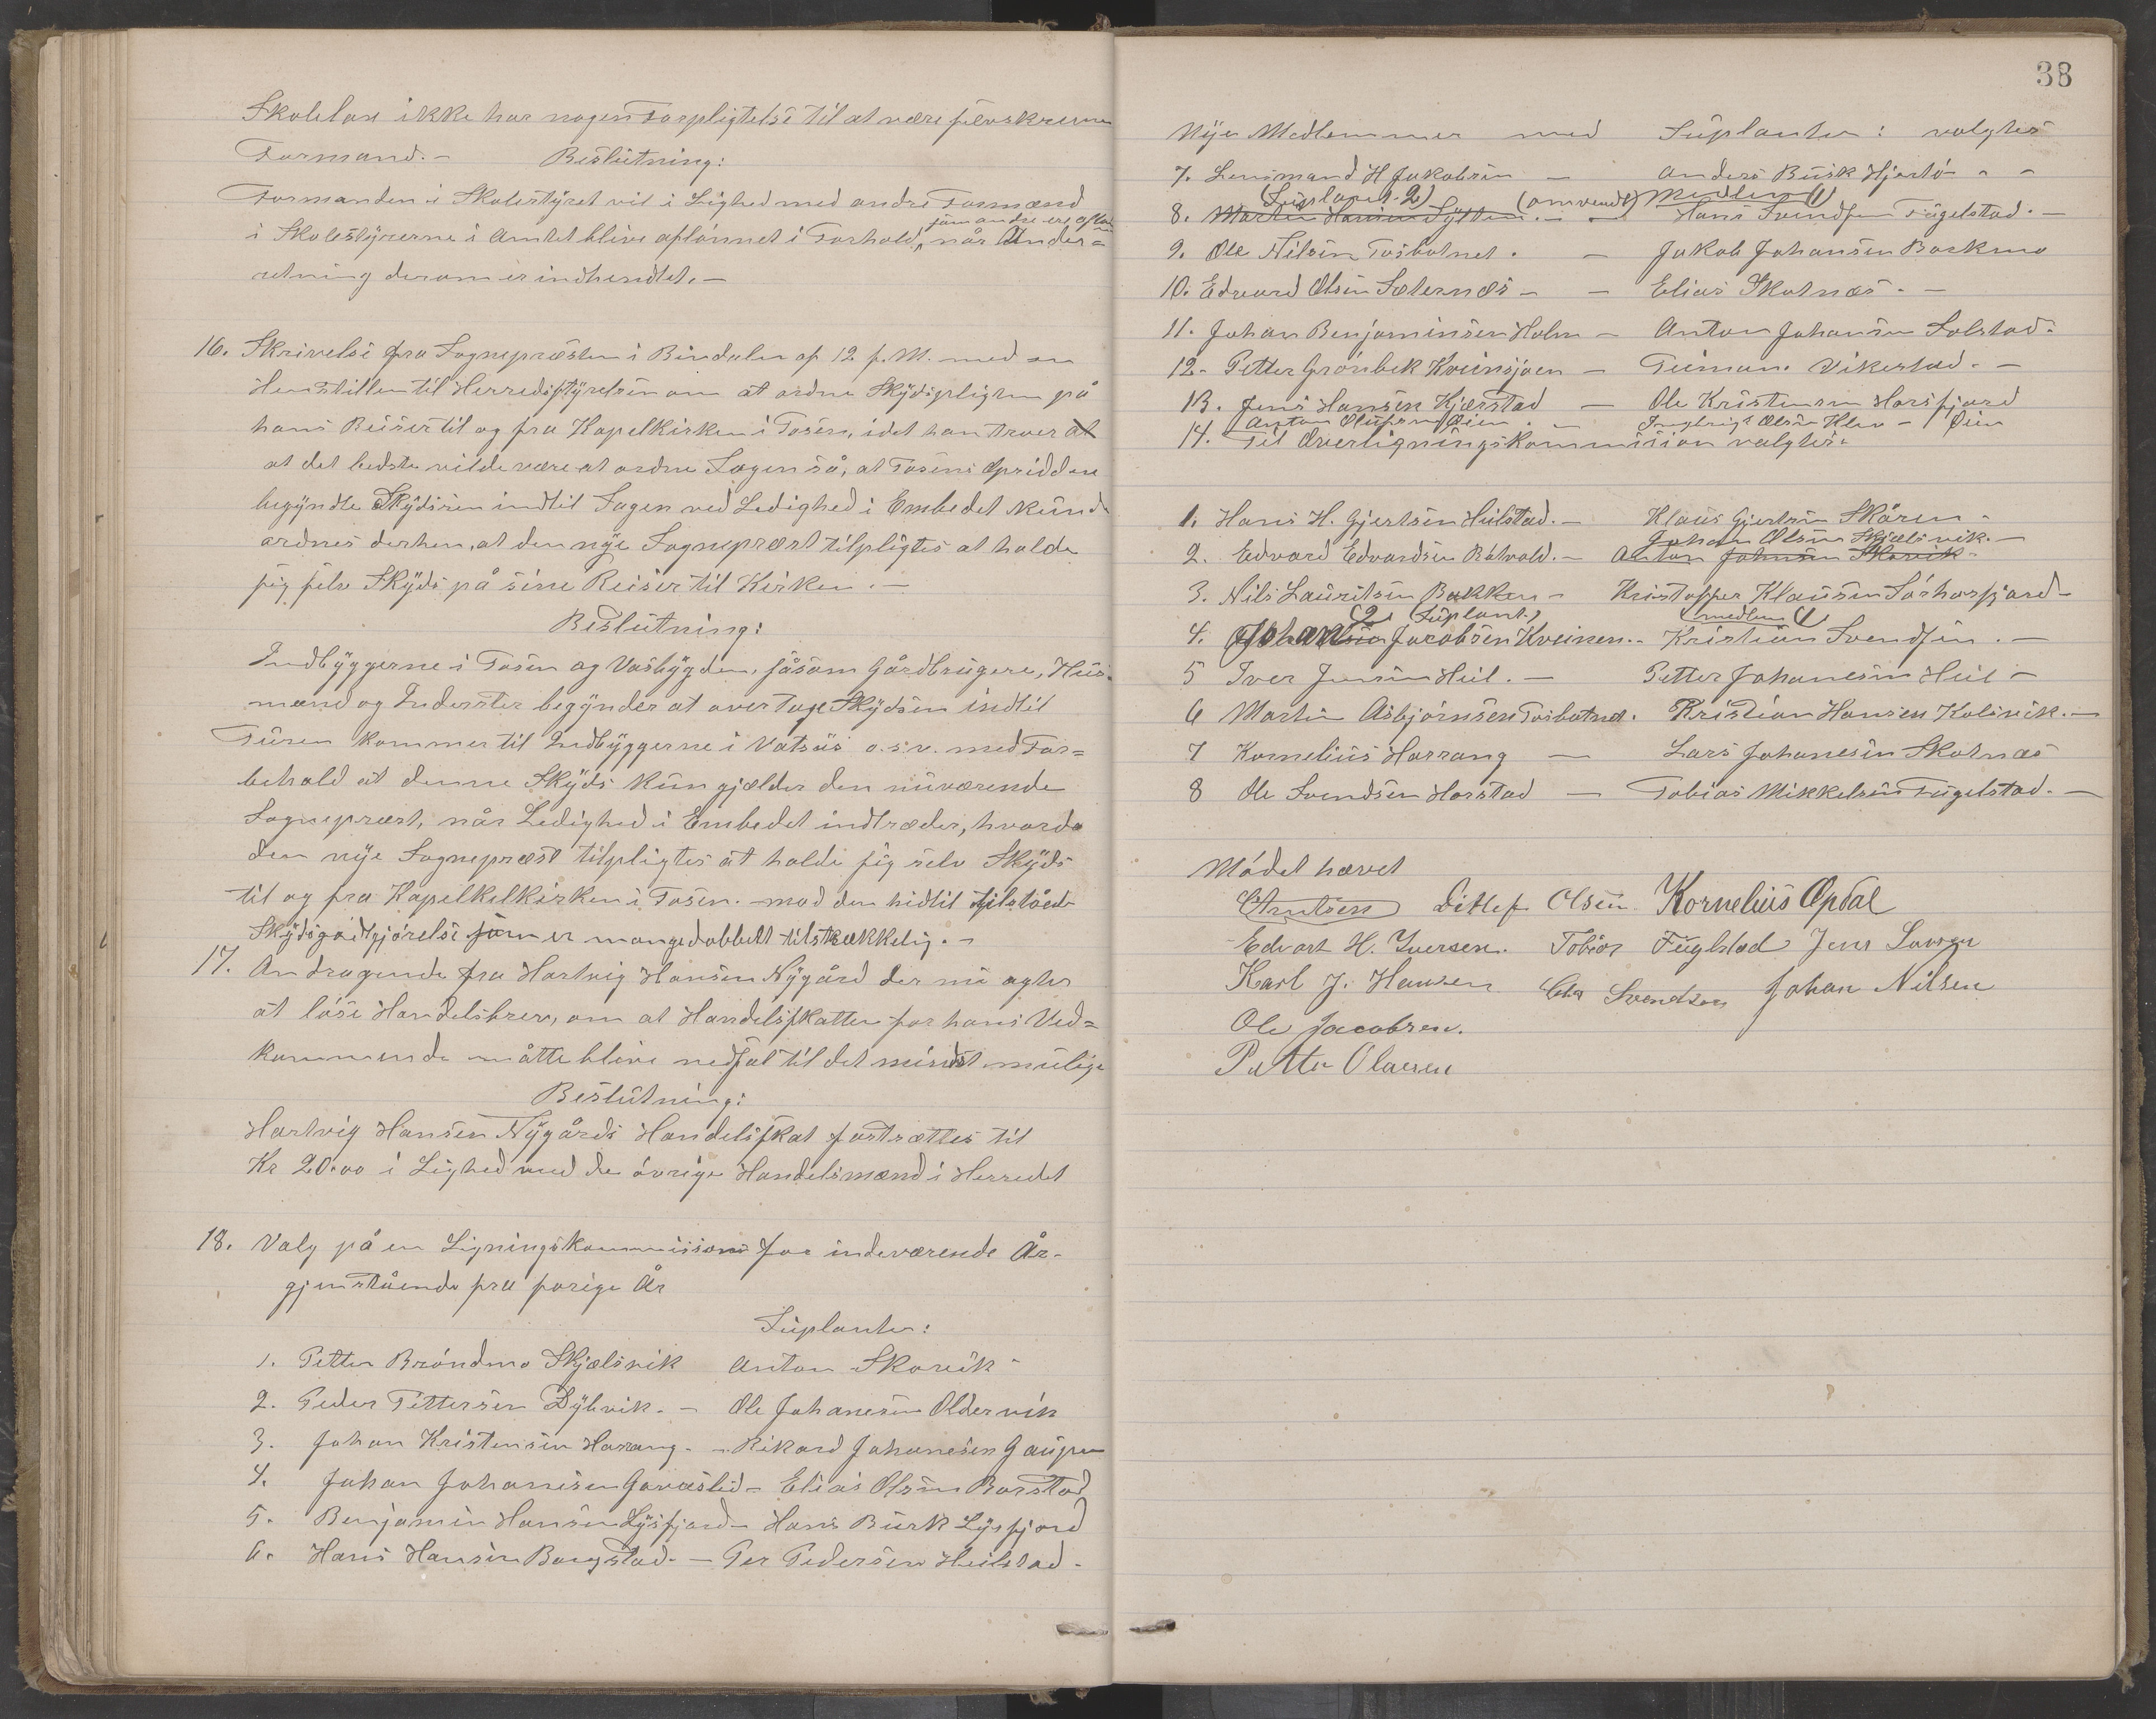 Skolelov ikke har nogen Forpligtelse til at være
Formand. - Beslutning:
Formanden i Skolestyret vil i Lighed med andre Formænd
i Skolestyrerne i Amtet blive aflønnet i Forhold, som andre ere når Under=
retning derom er indhendtet. -
16. Skrivelse fra Sognepræsten i Bindalen af 12 f. M. med en
Henstillen til Herredsstyrelsen om at ordne Skydspligten på
hans Reiser til og fra Kapelkirken i Tosen, idet han troer at
at det bedste vilde være at ordne Sagen så, at Tosens Opsiddere
begyndte Skydsen indtil Sagen ved Ledighed i Embedet kunde
ordnes derhen, at den nye Sognepræst tilpligtes at holde
sig selv Skyds på sine Reiser til Kirken. -
Beslutning:
Indbyggerne i Tosen og Vasbygden, såsom Gårdbrugere, Hus-
mænd og Inderster begynder at overtage Skydsen indtil
Turen kommer til Indbyggerne i Vatsås o.s.v. med For=
behold at denne Skyds kun gjælder den nuværende
Sognepræst, når Ledighed i Embedet indtræder, hvorda
den nye Sognepræst tilpligtes at holde sig selv Skyds
til og fra Kapelkelkirken i Tosen. - mod den hidtil tilståede
Skydsgodtgjørelse som er mangedobbelt tilstrækkelig. -
17. Andragende fra Hartvig Hansen Nygård der nu agter
at løse Handelsbrev, om at Handelsskatten for hans Ved=
kommende måtte blive nedsat til det mindst mulige
Beslutning:
Hartvig Hansen Nygårds Handelsskat fastsættes til
Kr 20.00 i Lighed med de øvrige Handelsmænd i Herredet
18. Valg på en Ligningskommission for indeværende År-
gjenstående fra forige År
Suplanter:
1. Petter Brøndmo Skjælsvik Anton Skovik -
2. Peder Pettersen Dybvik. - Ole Johanesen Oldervik
3. Johan Kristensen Harang. - Rikard Johanesen Gaupen
4. Johan Johanesen Gaväslid - Elias Olsen Borstad
5. Benjamin Hansen Lysfjord - Hans Busk Lysfjord
6. Hans Hansen Bangstad. - Per Pedersen Heilstad -
38
Nye Medlemmer med Suplanter: valgtes
7. Lensmand H Jakobsen - Anders Busk Hjortø - -
(Suplant. 2) (omvendt) Medlem (1)
8. Martin Hansen - Hans Svendsen Fugelstad. -
9. Ole Nilsen Tosbotnet. - Jakob Johansen Bockmo
10. Edvard Olsen Sæternæs - - Elias Skotnæs. -
11. Johan Benjaminsen Holm - Anton Johansen Solstad -
12. Petter Grønbek Kveinsjøen - Teiman. Vikestad. -
13. Jens Hansen Kjærstad - Ole Kristensen Horsfjord
Anton Olufsen Øien. - Ingbrigt Olsen - Øien
14. Til Overligningskommission valgtes:
1. Hans H. Gjertsen Heilstad. - Klaus Gjertsen Skåren -
Johan Olsen Skjælsvik. -
2. Edvard Edvardsen Båtvold. - Anton Johnsen Skovik -
3. Nils Lauritsen Bakken - Kristoffer Klausen Sørhorsfjord -
(2 Suplant.) medlem (1
4. Johan Jacobsen Kveinen. - Kristian Svendsen. -
5 Iver Jensen Heil. - Petter Johanesen Heil -
6 Martin Asbjørnsen Tosbotnet. Kristian Hansen Kolsvik. -
7 Kornelius Harrang - Lars Johanesen Skotnæs
8 Ole Svendsen Horstad - Tobias Mikkelsen Fugelstad. -
Mødet hævet
CArntsen Ditlef Olsen Kornelius Opdal
Edvart H. Iversen. Tobias Fuglstad Jens
Karl J. Hansen Svendsen Johan Nilsen
Ole Jacobsen.
Petter Olausen